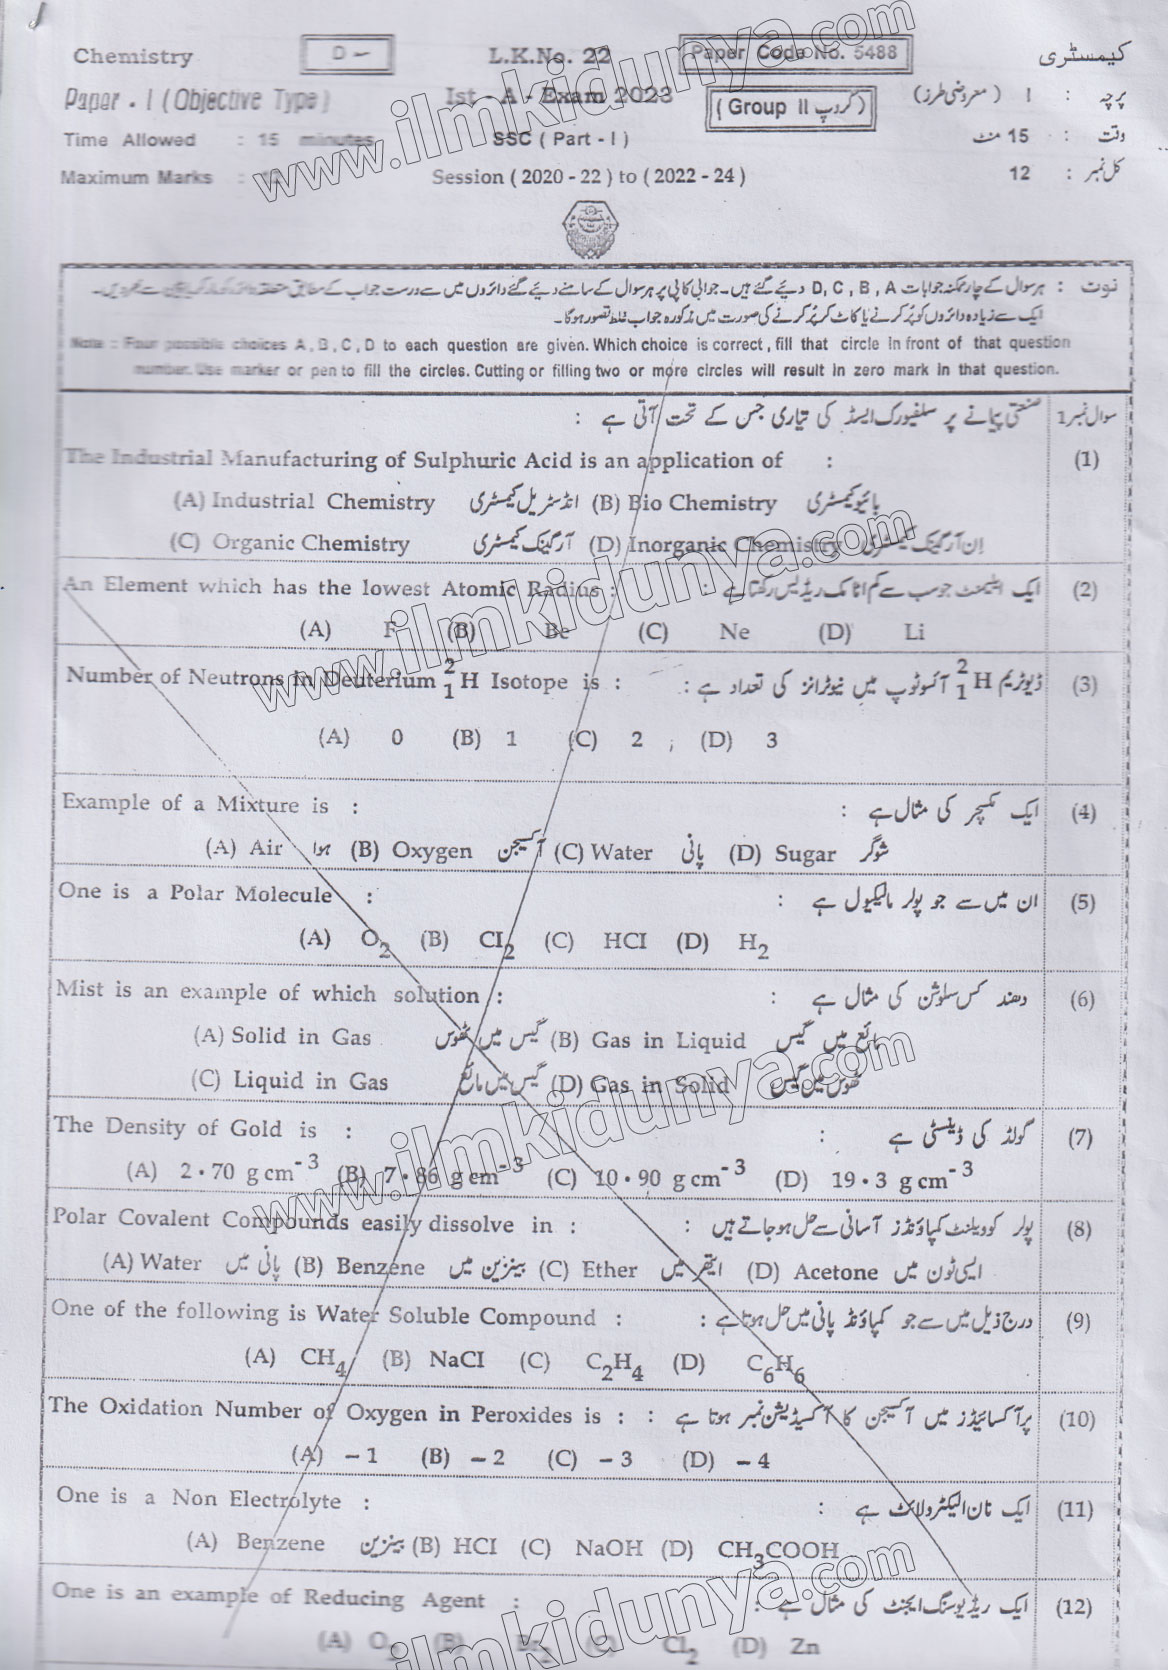 Chemistry D – L.K.No. 22 Paper Code No. 5488 کیمسٹری
Paper - I ( Objective Type ) Ist - A - Exam 2023 ( Group II گروپ ) پرچہ : I ( معروضی طرز )
Time Allowed : 15 minutes SSC ( Part - I ) وقت : 15 منٹ
Maximum Marks : 12 Session ( 2020 - 22 ) to ( 2022 - 24 ) کل نمبر : 12
نوٹ : ہر سوال کے چار ممکنہ جوابات D , C , B , A دیئے گئے ہیں۔ جوابی کاپی پر ہر سوال کے سامنے دیئے گئے دائروں میں سے درست جواب کے مطابق متعلقہ دائرہ کو مارکر یا پین سے بھر دیں۔
ایک سے زیادہ دائروں کو پُر کرنے یا کاٹ کر پُر کرنے کی صورت میں مذکورہ جواب غلط تصور ہوگا۔
Note : Four possible choices A , B , C , D to each question are given. Which choice is correct , fill that circle in front of that question
number. Use marker or pen to fill the circles. Cutting or filling two or more circles will result in zero mark in that question.
سوال نمبر 1 صنعتی پیمانے پر سلفیورک ایسڈ کی تیاری جس کے تحت آتی ہے :
The Industrial Manufacturing of Sulphuric Acid is an application of : (1)
(A) Industrial Chemistry انڈسٹریل کیمسٹری (B) Bio Chemistry بائیو کیمسٹری
(C) Organic Chemistry آرگینک کیمسٹری (D) Inorganic Chemistry اِن آرگینک کیمسٹری
An Element which has the lowest Atomic Radius : ایک ایلیمنٹ جو سب سے کم اٹامک ریڈیس رکھتا ہے : (2)
(A) F (B) Be (C) Ne (D) Li
Number of Neutrons in Deuterium ²₁H Isotope is : ڈیوٹریم ²₁H آئسوٹوپ میں نیوٹرانز کی تعداد ہے : (3)
(A) 0 (B) 1 (C) 2 , (D) 3
Example of a Mixture is : ایک مکسچر کی مثال ہے : (4)
(A) Air ہوا (B) Oxygen آکسیجن (C) Water پانی (D) Sugar شوگر
One is a Polar Molecule : ان میں سے جو پولر مالیکیول ہے : (5)
(A) O₂ (B) Cl₂ (C) HCl (D) H₂
Mist is an example of which solution : دھند کس سلوشن کی مثال ہے : (6)
(A) Solid in Gas گیس میں ٹھوس (B) Gas in Liquid مائع میں گیس
(C) Liquid in Gas گیس میں مائع (D) Gas in Solid ٹھوس میں گیس
The Density of Gold is : گولڈ کی ڈینسٹی ہے : (7)
(A) 2.70 g cm⁻³ (B) 7.86 g cm⁻³ (C) 10.90 g cm⁻³ (D) 19.3 g cm⁻³
Polar Covalent Compounds easily dissolve in : پولر کوویلنٹ کمپاؤنڈز آسانی سے حل ہو جاتے ہیں : (8)
(A) Water پانی میں (B) Benzene بینزین میں (C) Ether ایتھر میں (D) Acetone ایسی ٹون میں
One of the following is Water Soluble Compound : درج ذیل میں سے جو کمپاؤنڈ پانی میں حل ہوتا ہے : (9)
(A) CH₄ (B) NaCl (C) C₂H₄ (D) C₆H₆
The Oxidation Number of Oxygen in Peroxides is : پرآکسائیڈز میں آکسیجن کا آکسیڈیشن نمبر ہوتا ہے : (10)
(A) – 1 (B) – 2 (C) – 3 (D) – 4
One is a Non Electrolyte : ایک نان الیکٹرولائٹ ہے : (11)
(A) Benzene بینزین (B) HCl (C) NaOH (D) CH₃COOH
One is an example of Reducing Agent : ایک ریڈیوسنگ ایجنٹ کی مثال ہے : (12)
(A) O₂ (B) Br₂ (C) Cl₂ (D) Zn
www.ilmkidunya.com
www.ilmkidunya.com
www.ilmkidunya.com
www.ilmkidunya.com